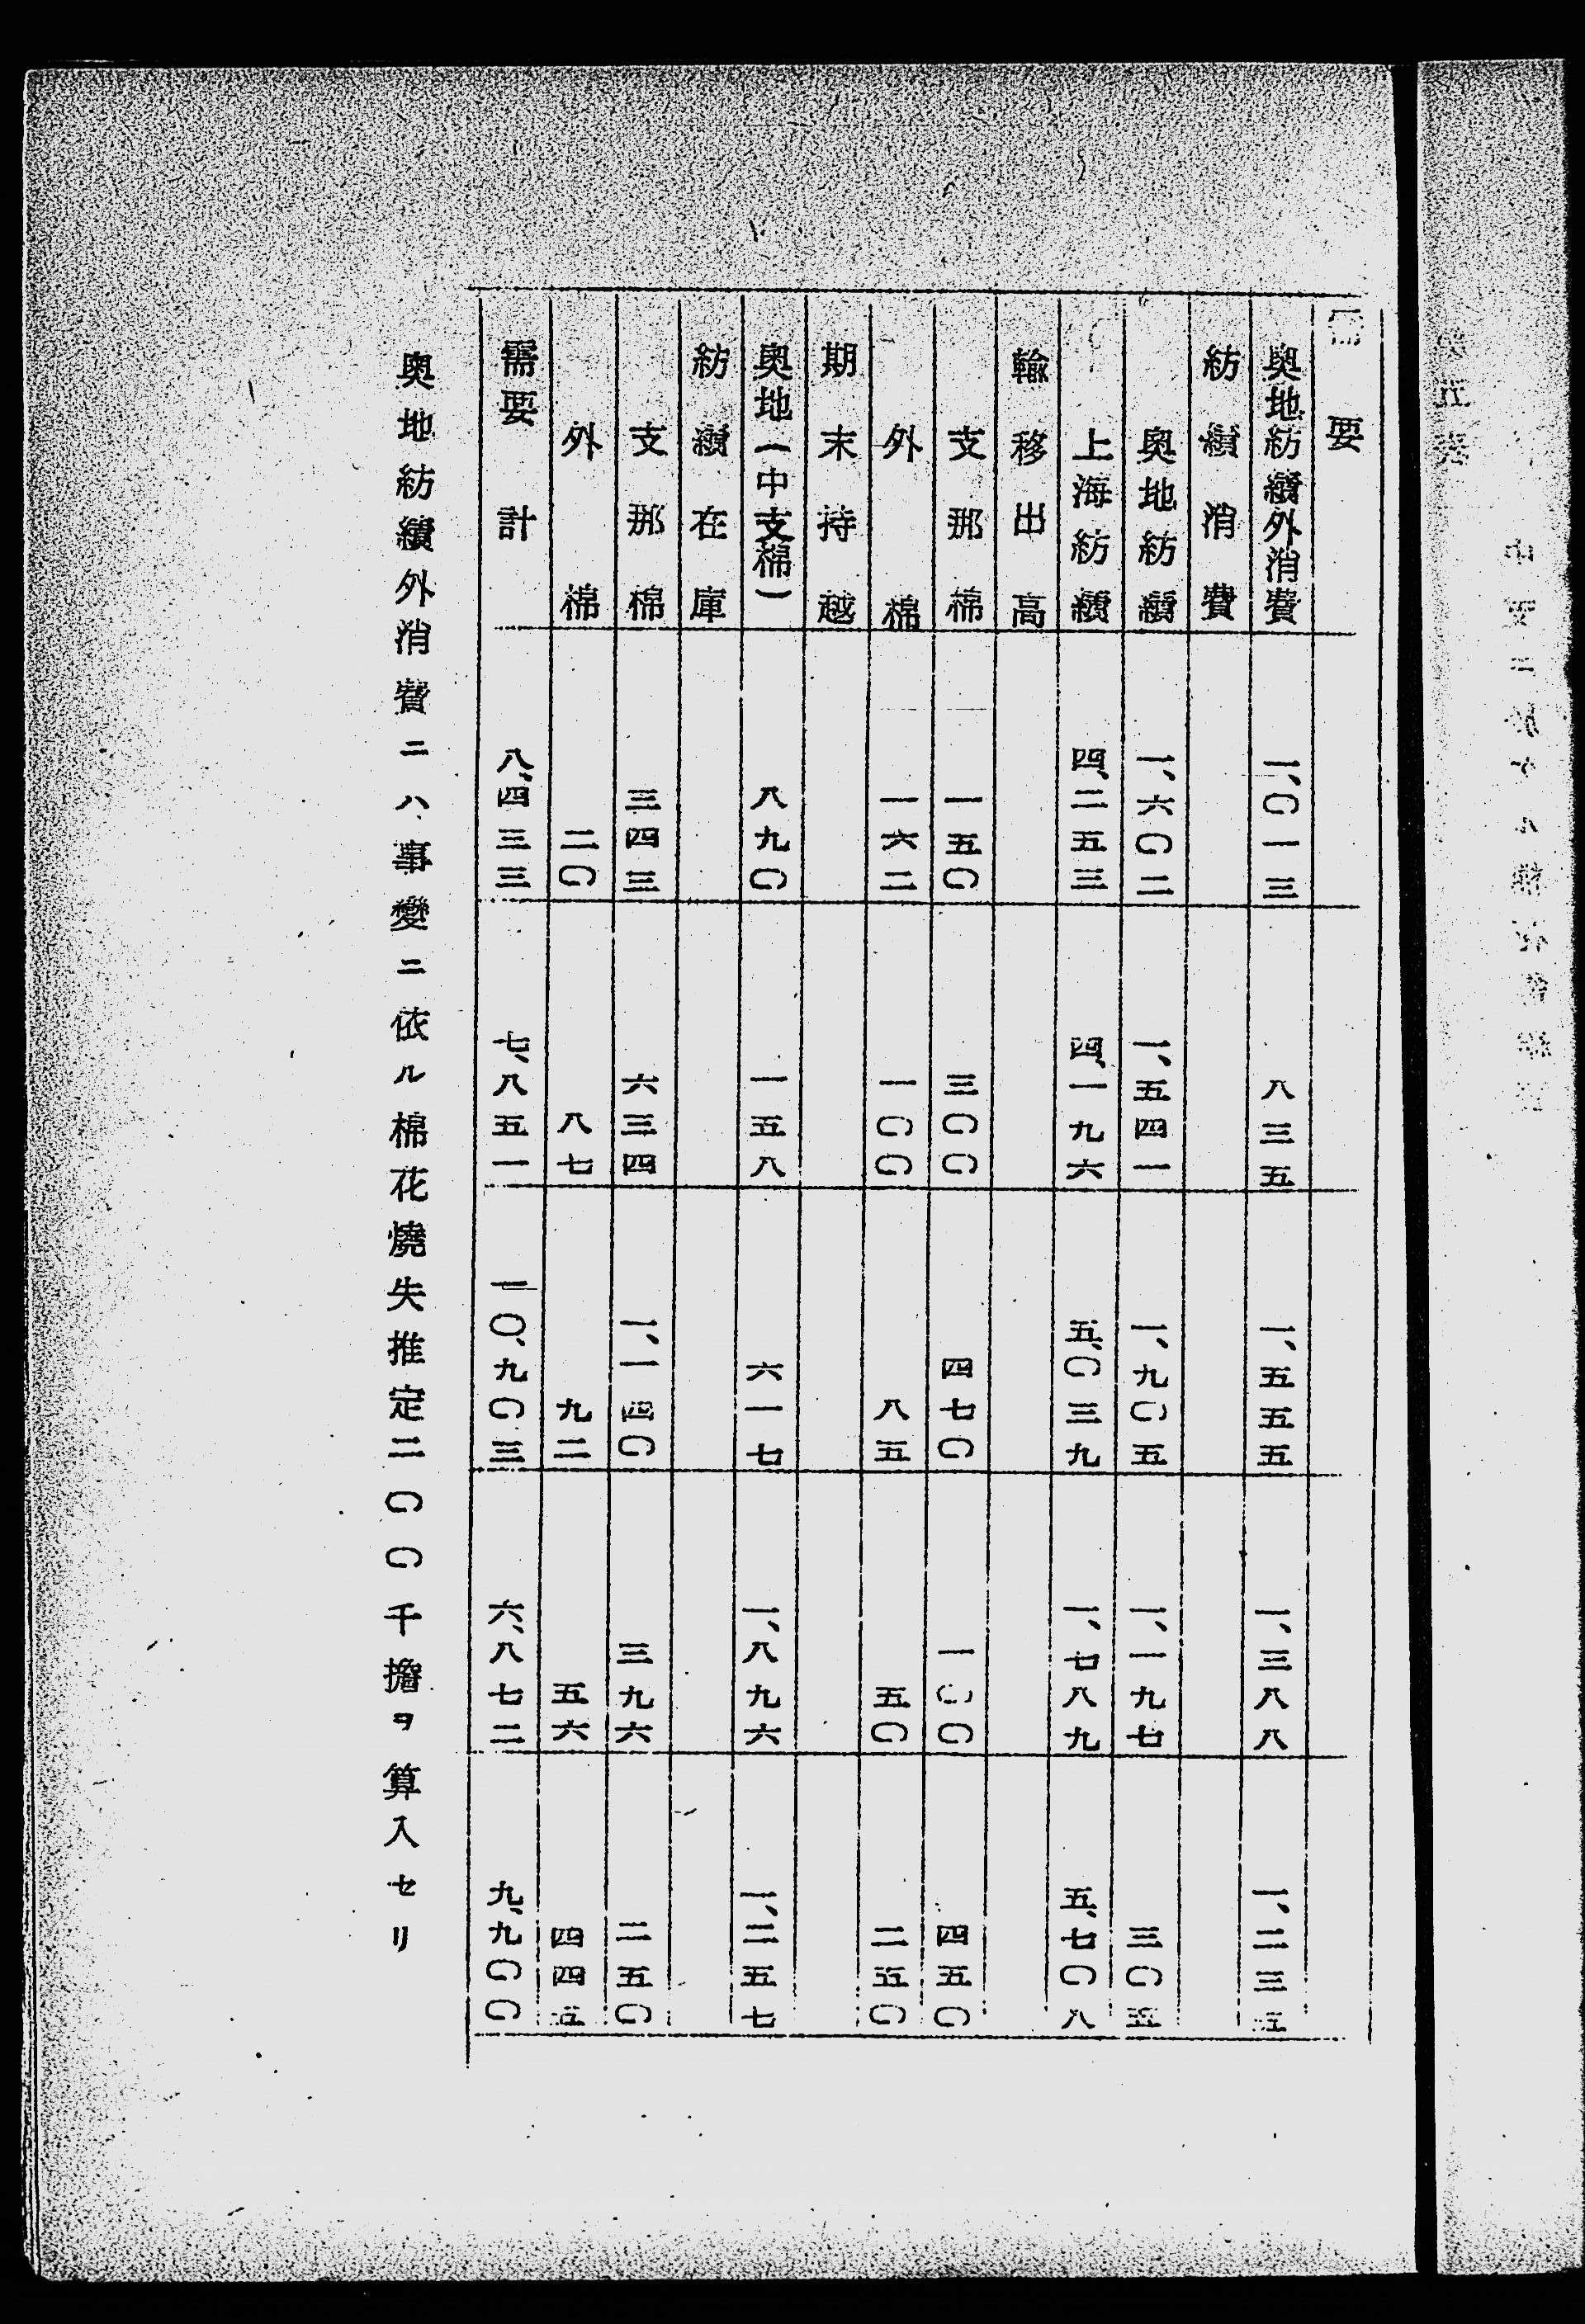 需要
奥地紡績外消費 一、〇一三 八三五 一、五五五 一、三八八 一、二三五
紡績消費
奥地紡績 一、六〇二 一、五四一 一、九〇五 一、一九七 三〇五
上海紡績 四、二五三 四、一九六 五、〇三九 一、七八九 五、七〇八
輸移出高
支那棉 一五〇 三〇〇 四七〇 一〇〇 四五〇
外棉 一六二 一〇〇 八五 五〇 二五〇
期末持越
奥地(中支棉) 八九〇 一五八 六一七 一、八九六 一、二五七
紡績在庫
支那棉 三四三 六三四 一、一四〇 三九六 二五〇
外棉 二〇 八七 九二 五六 四四五
需要計 八、四三三 七、八五一 一〇、九〇三 六、八七二 九、九〇〇
奥地紡績外消費ニハ事變ニ依ル棉花燒失推定二〇〇千擔ヲ算入セリ